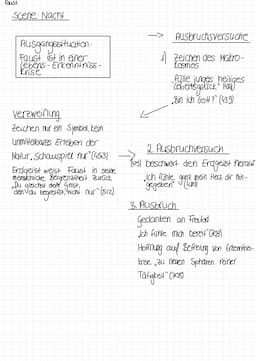 Faust
Szene Nacht
Ausgangssituation:
Faust ist in einer
Lebens-Erkenntniss-
krise
→ Ausbruchsversuche
1) Zeichen des Makro-
kosmos
"Fühle junges heiliges
Lebensglück"
"Bin ich Gott?" (439)
Verzweiflung
Zeichen nur ein Symbol, kein
unmittelbares Erleben der
Natur "Schauspiel nur" (454)
Erdgeist weist Faust in seine
menschliche Begrenztheit zurück
"Du gleichst dem Geist,
den du begreifst, nicht mir" (512)
2. Ausbruchversuch
beschwört den Erdgeist herauf
"Ich fühle ganz mein Herz dir hin-
gegeben"
3. Ausbruch
Gedanken an Freitod
"Ich fühle mich bereit"
Hoffnung auf Befreiung von
"zu neuen Sphären reiner
Tätigkeit" (705)